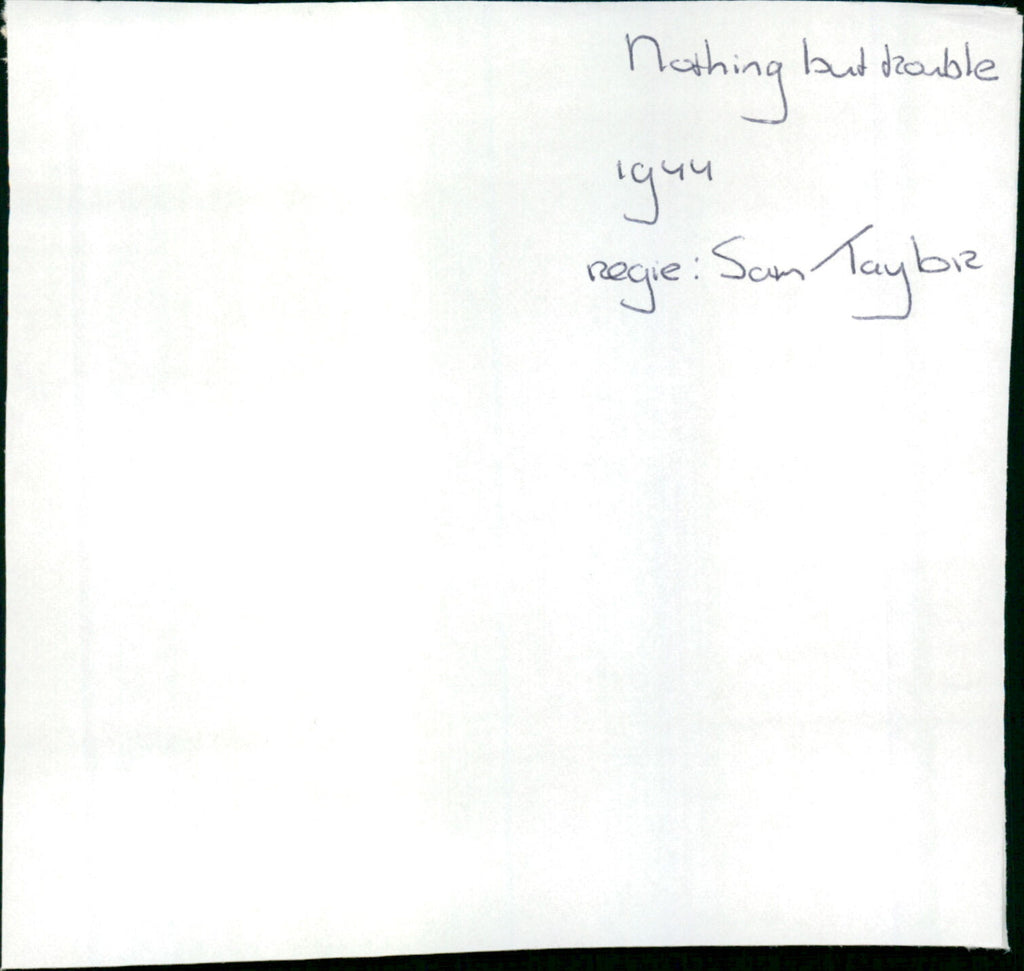 Nothing but trouble
1944
regie: Sam Taylor